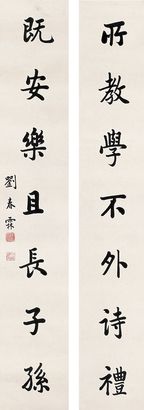 所教學不外詩禮
既安樂且長子孫
劉春霖